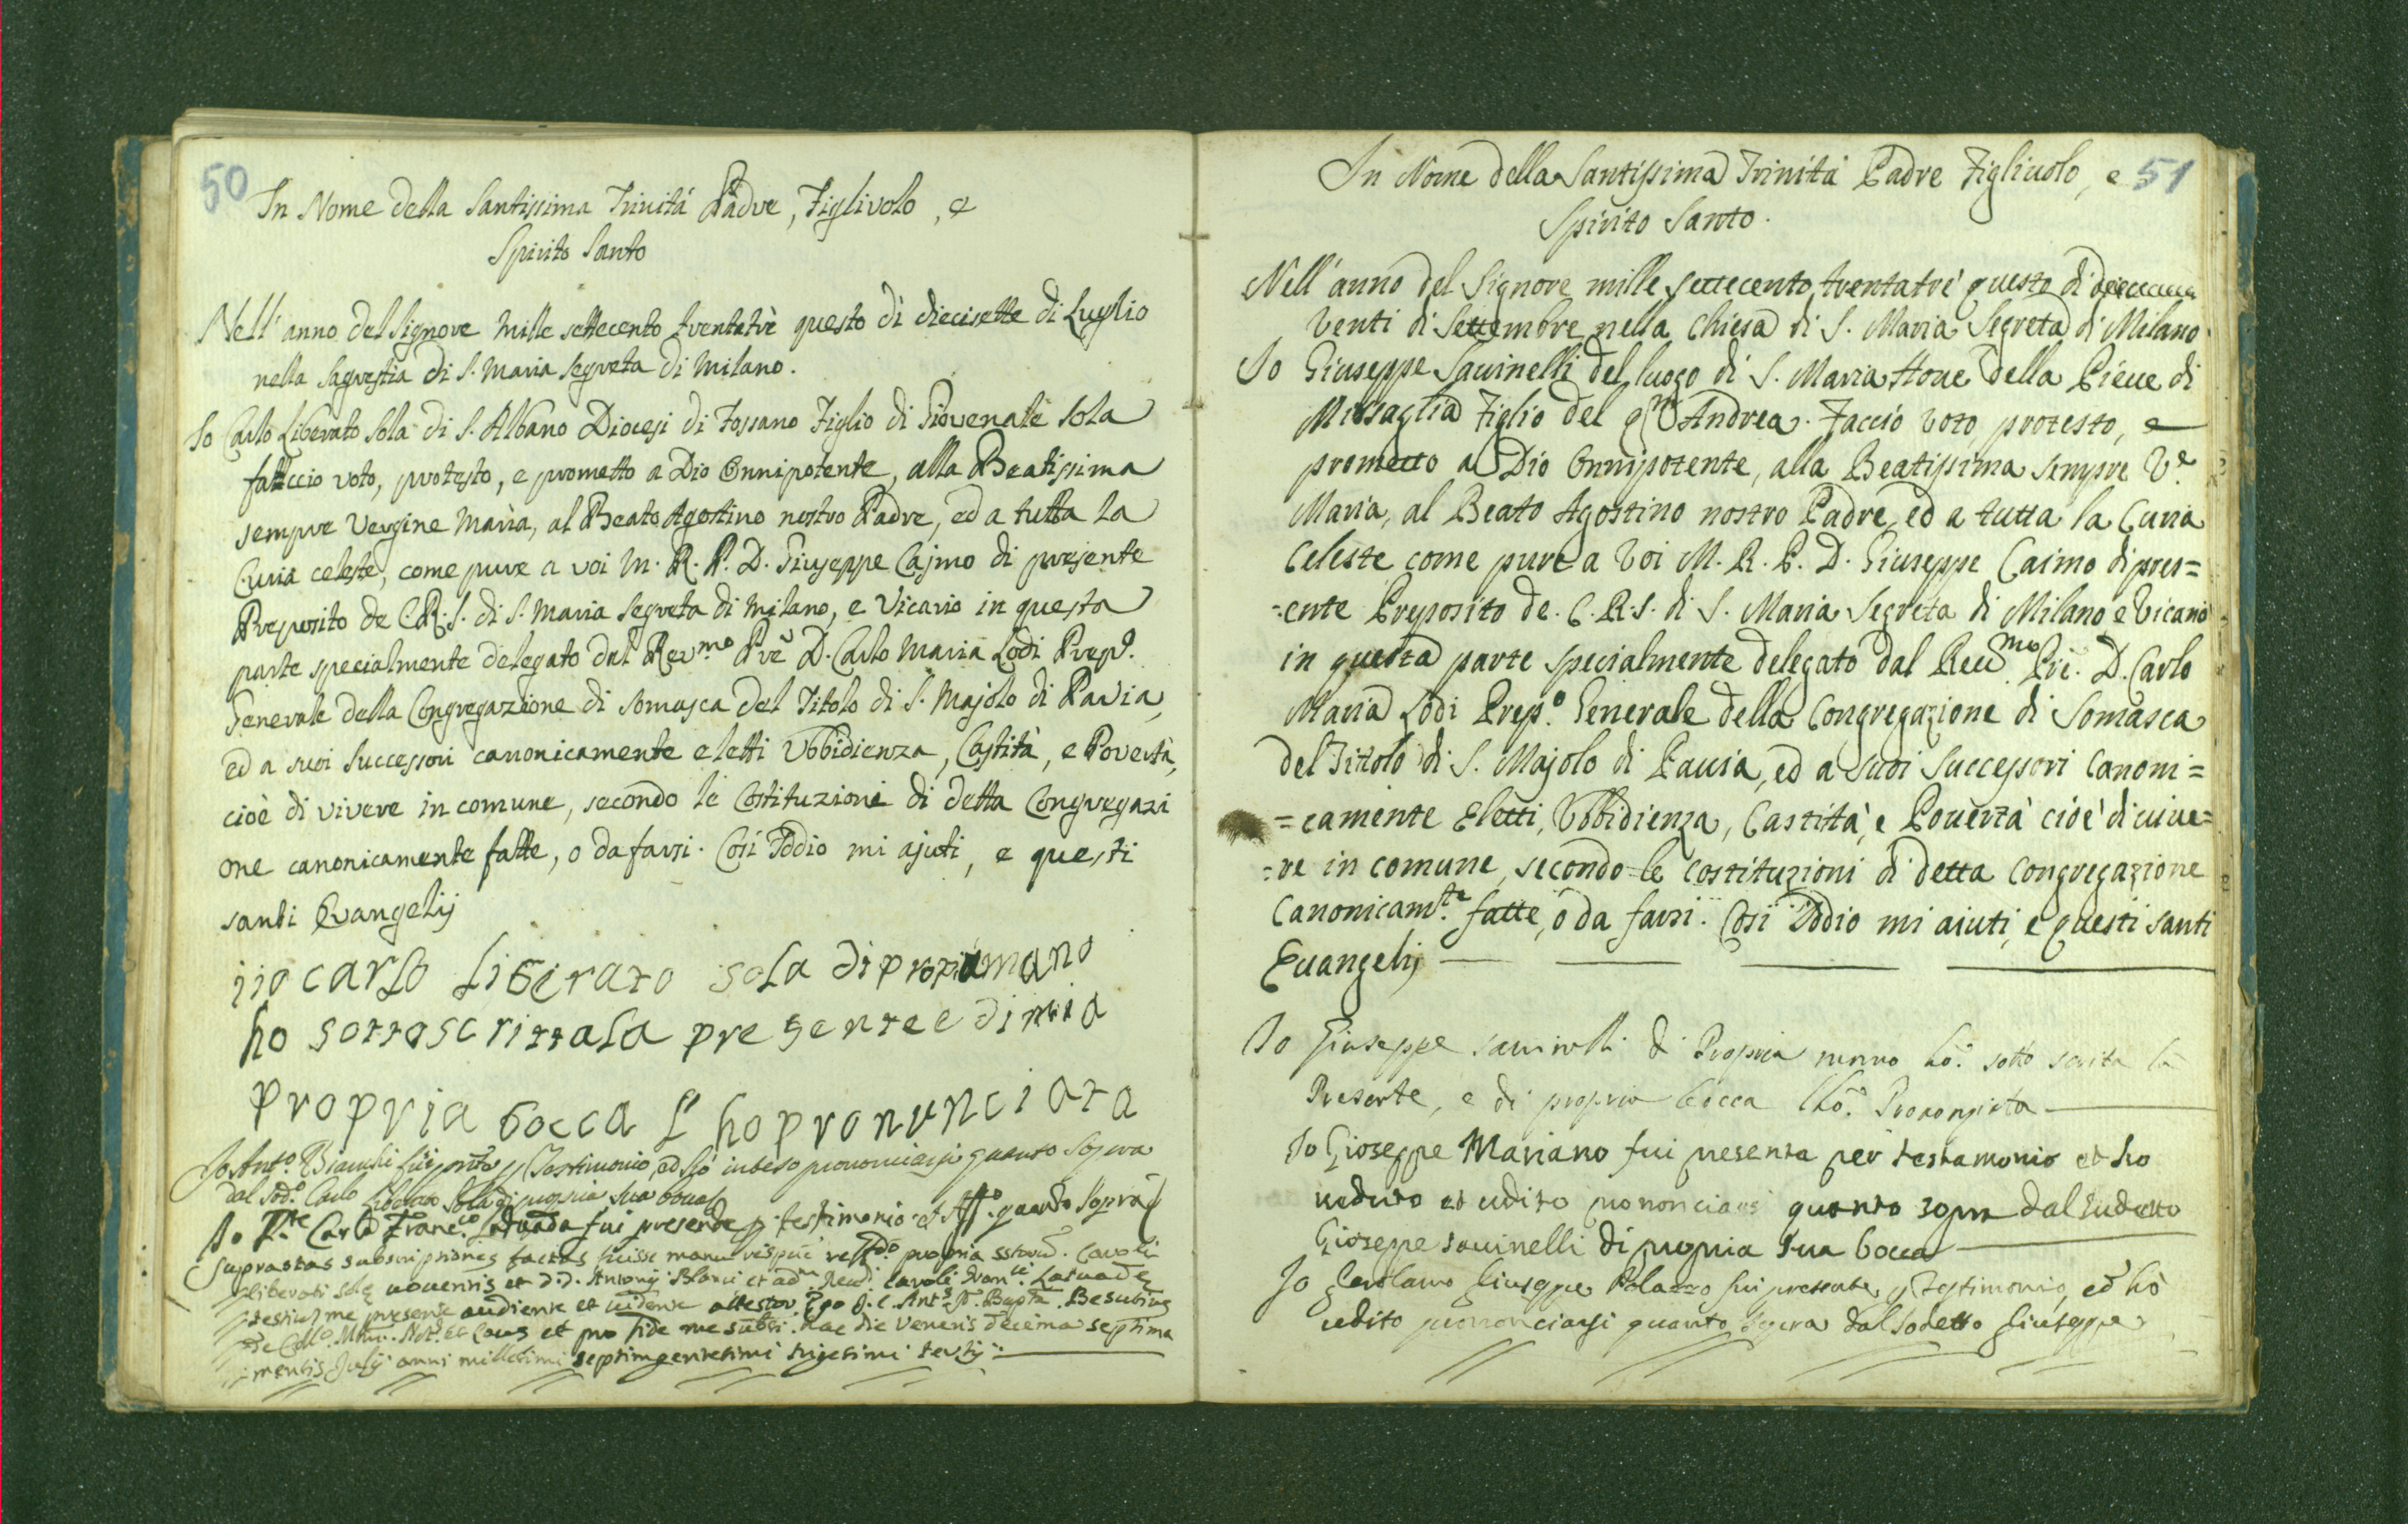 50
In Nome della Santissima Trinitá Padre, Figlivolo, e
Spirito Santo
Nell'anno del Signore mille settecento trentatrè questo dì diecisette di Luglio
nella Sagrestia di S. Maria Segreta di Milano.
Io Carlo Liberato Sola di S. Albano Diocesi di Fossano Figlio di Giovenale Sola
fattccio voto, protesto, e prometto a Dio Onnipotente, alla Beatissima
sempre Vergine Maria, al Beato Agostino nostro Padre, ed a tutta la
Curia celeste, come pure a voi M. R. P. D. Giuseppe Cajmo di presente
Preposito de C.R.S. di S. Maria Segreta di Milano, e Vicario in questa
parte specialmente delegato dal Rev.mo Prē D. Carlo Maria Lodi Prep.o
Generale della Congregazione di Somasca del Titolo di S. Majolo di Pavia,
ed a suoi Successori canonicamente eletti Vbbidienza, Castità, e Povertà,
cioè di vivere in comune, secondo le Costituzioni di detta Congregazi
one canonicamente fatte, o da farsi. Così Iddio mi ajuti, e questi
santi Evangelij
iio carlo Liberato sola di propria mano
ho sottoscritta la presente e di mia
propria bocca l'ho pronunciata
Io Ant.o Bianchi fui pnte p Testimonio, ed hò inteso prononciarsi quanto sopra
dal sod.o Carlo Liberato Sola di propria sua bocca
Io Pte Carlo Franc.co fui presente p. testimonio et Aff.o quanto sopra
Suprastas subscriptiones factas fuisse manu propria Caroli
Liberati Solę voventis et D.D. Antonij Blanci et Caroli Fran.ci
testium me presente audiente et vidente attestor. Ego J. C. Ant.s Bapta Besutius
de Coll.o Not. et Caus et pro fide me subsi. hac die Veneris decima septima
mensis Julij anni millesimi septimgentesimi trigesimi tertij
51
In Nome della Santissima Trinità Padre Figliuolo, e
Spirito Santo.
Nell'anno del Signore mille settecento trentatrè questo di
venti di Settembre nella Chiesa di S. Maria Segreta di Milano
Io Giuseppe Sauinelli del luogo di S. Maria Houe della Pieue di
Missaglia Figlio del qm Andrea. Faccio voto protesto, e
prometto a Dio Onnipotente, alla Beatissima sempre Ve.
Maria, al Beato Agostino nostro Padre, ed a tutta la Curia
Celeste come pure a Voi M. R. P. D. Giuseppe Caimo di pres=
=ente Preposito de. C. R. S. di S. Maria Segreta di Milano e Vicario
in questa parte specialmente delegato dal Reu.mo Prē. D. Carlo
Maria Lodi Prep.o Generale della Congregazione di Somasca
del Titolo di S. Majolo di Pauia, ed a suoi Successori Canoni=
=camente Eletti, Vbbidienza, Castità, e Pouertà cioè di uiue=
=re in comune, secondo le costituzioni di detta Congregazione
Canonicam.te fatte, ò da farsi. Così Iddio mi aiuti, e questi santi
Euangelij
Io Giuseppe sauinelli di Propria mano hò sotto scrita la
Presente, e di propria bocca lhò
Io Gioseppe Mariano fui presenta per testamonio et ho
ueduto et udito prononciarsi quanto sopra dal sudetto
Gioseppe sauinelli di propria sua bocca
Io Gerolamo Giuseppe Palazzo fui presente p Testimonio, ed hò
udito prononciarsi quanto sopra dal sodetto Giuseppe